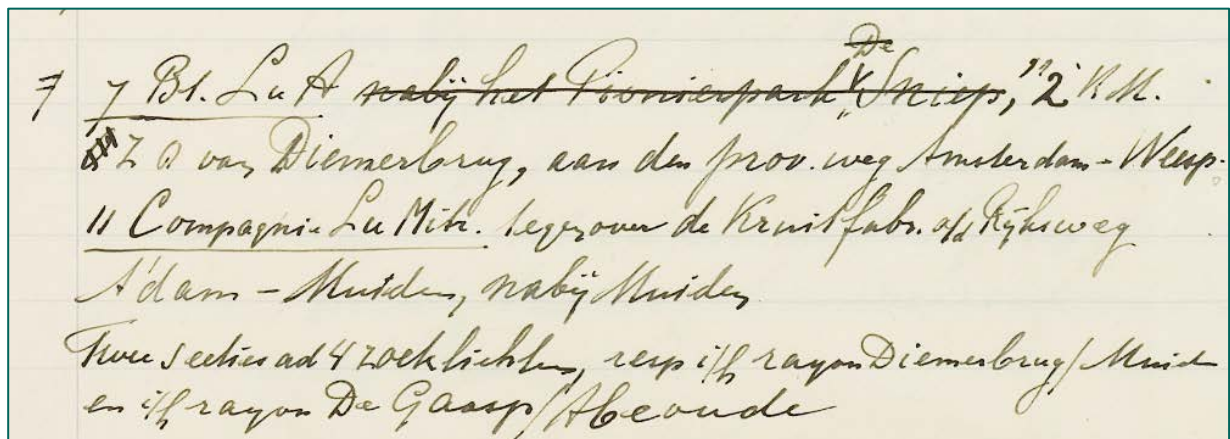 De
7 7 Bt. Lu A nabij het Pionierpark "Sniep," 2 K.M.
Z O van Diemerbrug, aan den prov. weg Amsterdam - Weesp.
11 Compagnie Lu Mitr. tegenover de Kruitfabr. a/d Rijksweg
A'dam - Muiden, nabij Muiden
Twee secties ad 4 zoeklichten, resp i/h rayon Diemerbrug/Muid
en i/h rayon De Gaasp/Abcoude